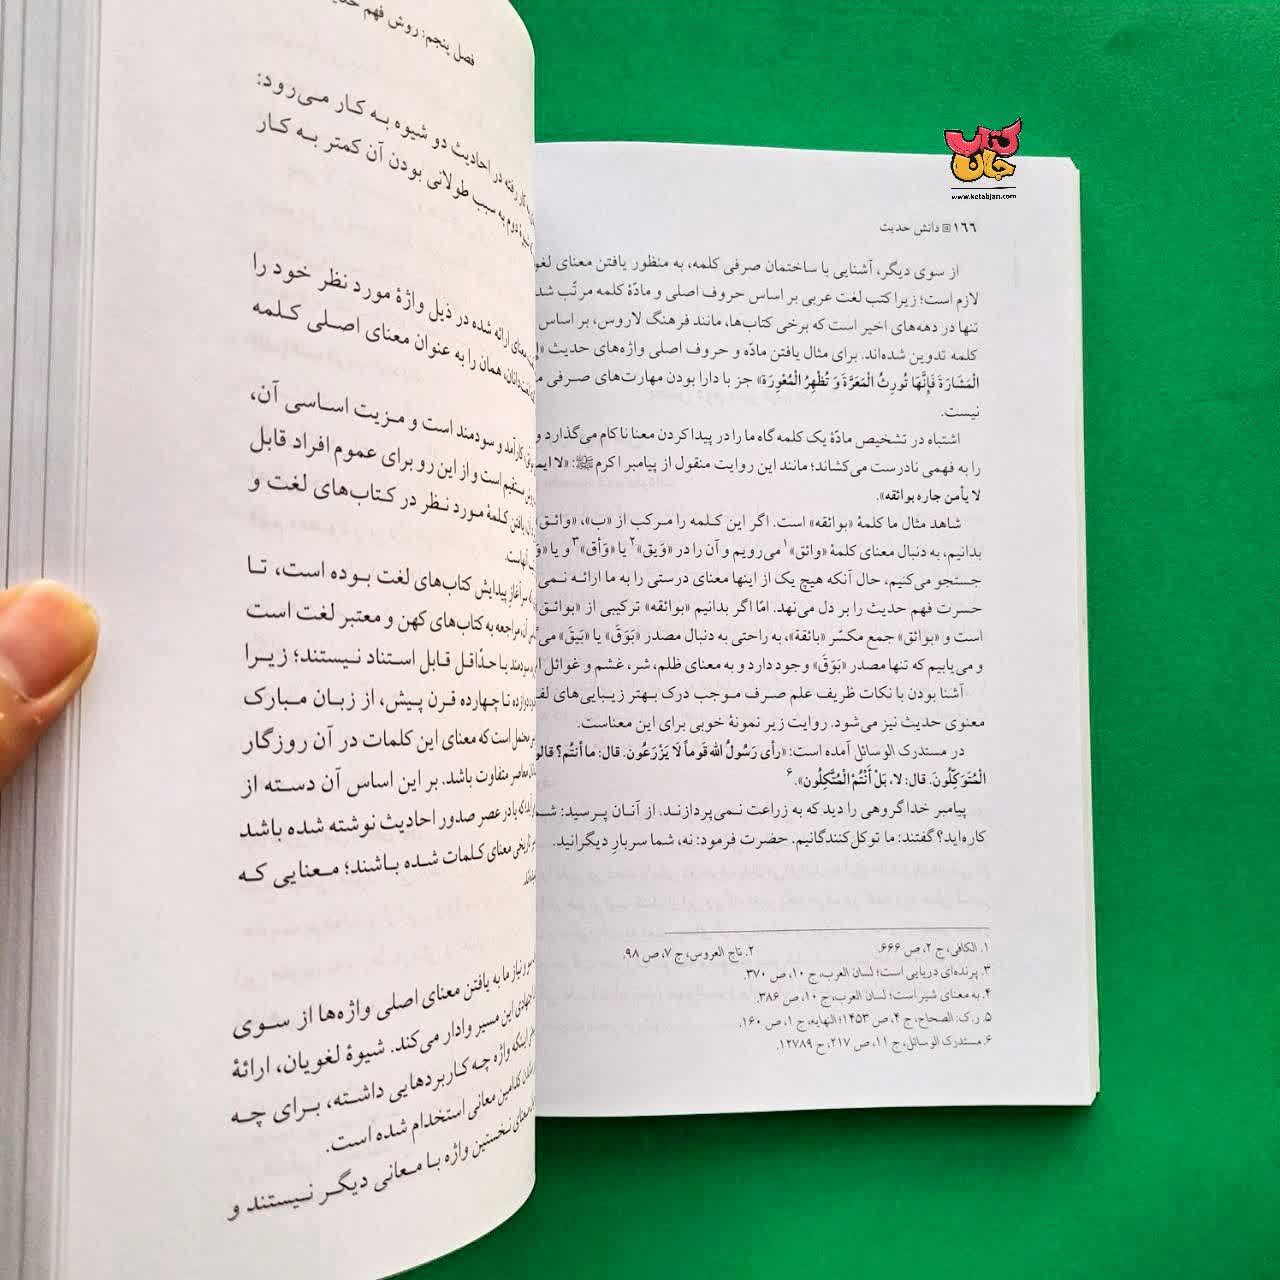 کتاب
جان
www.ketabjan.com
۱۶۶ دانش حدیث
از سوی دیگر، آشنایی با ساختمان صرفی کلمه، به منظور یافتن معنای
لازم است؛ زیرا کتب لغت عربی بر اساس حروف اصلی و مادّهٔ کلمه مرتّب
تنها در دهه‌های اخیر است که برخی کتاب‌ها، مانند فرهنگ لاروس، بر اساس
کلمه تدوین شده‌اند. برای مثال یافتن مادّه و حروف اصلی واژه‌های حدیث
الْمَشَارَةَ فَإِنَّهَا تُورِثُ الْمَعَرَّةَ وَ تُظْهِرُ الْمُعْوِرَة» جز با دارا بودن مهارت‌های صرفی
نیست.
اشتباه در تشخیص مادّهٔ یک کلمه گاه ما را در پیدا کردن معنا ناکام می‌گذارد و
را به فهمی نادرست می‌کشاند؛ مانند این روایت منقول از پیامبر اکرم ﷺ: «لا
لا یأمن جاره بوائقه».
شاهد مثال ما کلمهٔ «بوائقه» است. اگر این کلمه را مرکب از «ب»،
بدانیم، به دنبال معنای کلمهٔ «وائق»۱ می‌رویم و آن را در «وَیق»۲ یا «وَأق»۳ و یا
جستجو می‌کنیم، حال آنکه هیچ یک از اینها معنای درستی را به ما ارائه
حسرت فهم حدیث را بر دل می‌نهد. امّا اگر بدانیم «بوائقه» ترکیبی از
است و «بوائق» جمع مکسّر «بائقة»، به راحتی به دنبال مصدر «بَوَقَ» یا «بَیَقَ»
و می‌یابیم که تنها مصدر «بَوَقَ» وجود دارد و به معنای ظلم، شر، غشم و غوائل
آشنا بودن با نکات ظریف علم صرف موجب درک بهتر زیبایی‌های
معنوی حدیث نیز می‌شود. روایت زیر نمونهٔ خوبی برای این معناست.
در مستدرک الوسائل آمده است: «رأی رَسُولُ الله قَوماً لَا یَزْرَعُون. قال: ما أنتُم؟
الْمُتَوَکِّلُونَ. قال: لا، بَلْ أَنْتُمُ الْمُتَّکِلُون».۶
پیامبر خدا گروهی را دید که به زراعت نمی‌پردازند. از آنان پرسید:
کاره‌اید؟ گفتند: ما توکل‌کنندگانیم. حضرت فرمود: نه، شما سربار دیگرانید.
۱. الکافی، ج ۲، ص ۶۶۶. ۲. تاج العروس، ج ۷، ص ۹۸.
۳. پرنده‌ای دریایی است؛ لسان العرب، ج ۱۰، ص ۳۷۰.
۴. به معنای شیر است؛ لسان العرب، ج ۱۰، ص ۳۸۶.
۵. ر.ک: الصحاح، ج ۴، ص ۱۴۵۳؛ النهایه، ج ۱، ص ۱۶۰.
۶. مستدرک الوسائل، ج ۱۱، ص ۲۱۷، ح ۱۲۷۸۹.
فصل پنجم: روش فهم
رفته در احادیث دو شیوه به کار می‌رود:
شیوهٔ دوم به سبب طولانی بودن آن کمتر به کار
معنای ارائه شده در ذیل واژهٔ مورد نظر خود را
همان را به عنوان معنای اصلی کلمه
کارآمد و سودمند است و مزیت اساسی آن،
مستقیم است و از این رو برای عموم افراد قابل
یافتن کلمهٔ مورد نظر در کتاب‌های لغت و
آنهاست.
آغاز پیدایش کتاب‌های لغت بوده است، تا
آن، مراجعه به کتاب‌های کهن و معتبر لغت است
سودمند یا حدّاقل قابل استناد نیستند؛ زیرا
دوازده تا چهارده قرن پیش، از زبان مبارک
محتمل است که معنای این کلمات در آن روزگار
معاصر متفاوت باشد. بر این اساس آن دسته از
که یا در عصر صدور احادیث نوشته شده باشد
تاریخی معنای کلمات شده باشند؛ معنایی که
نیاز ما به یافتن معنای اصلی واژه‌ها از سوی
این مسیر وادار می‌کند. شیوهٔ لغویان، ارائهٔ
اینکه واژه چه کاربردهایی داشته، برای چه
کدامین معانی استخدام شده است.
معنای نخستین واژه با معانی دیگر نیستند و